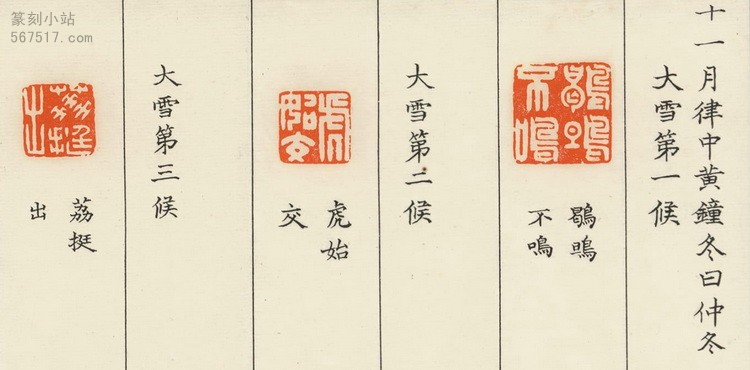 篆刻小站
567517.com
十一月律中黄鐘冬曰仲冬
大雪第一候
鶡鴠
不鳴
鶡鴠
不鳴
大雪第二候
虎
始交
虎始
交
大雪第三候
荔挺
出
荔挺
出